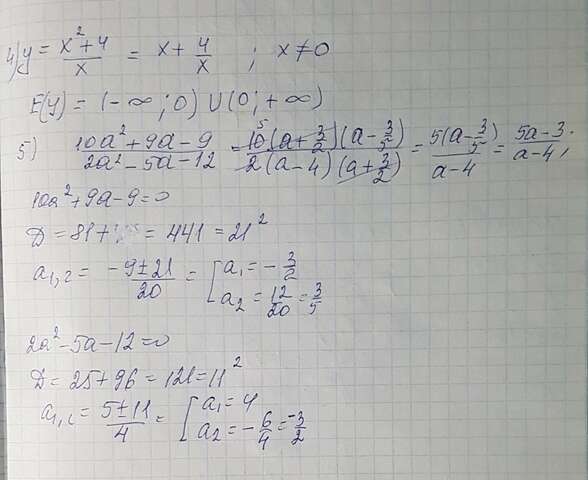 4) y = x²+4/x = x + 4/x ; x ≠ 0
E(y) = (-∞; 0) ∪ (0; +∞)
5) 10a²+9a-9/2a²-5a-12 = 10(a+3/2)(a-3/5)/2(a-4)(a+3/2) 5 = 5(a-3/5)/a-4 = 5a-3/a-4;
10a²+9a-9=0
D = 81+ = 441 = 21²
a1,2 = -9±21/20 = [a1 = -3/2
a2 = 12/20 = 3/5
2a²-5a-12=0
D = 25+96 = 121 = 11²
a1,2 = 5±11/4 = [a1 = 4
a2 = -6/4 = -3/2